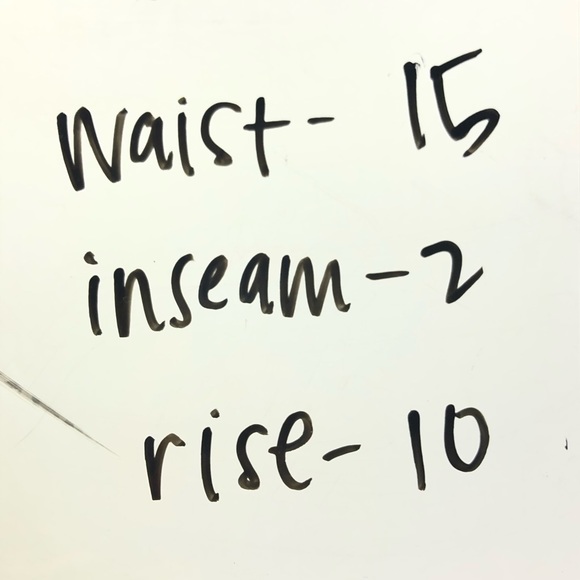 waist- 15
inseam-2
rise-10